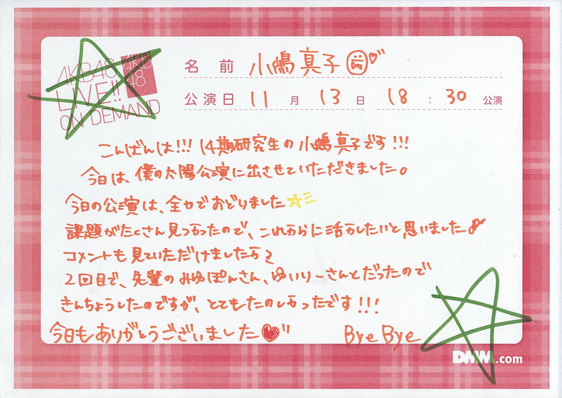 AKB48
LIVE!!
ON DEMAND
AKB
48
名前 小嶋真子
公演日 11月13日 18:30 公演
こんばんは!!! 14期研究生の小嶋真子です!!!
今日は、僕の太陽公演に出させていただきました。
今日の公演は、全力でおどりました
課題がたくさん見つかったので、これからに活かしたいと思いました
コメントも見ていただけましたか?
2回目で、先輩のみゆぽんさん、ゆいりーさんとだったので
きんちょうしたのですが、とてもたのしかったです!!!
今日もありがとうございました
Bye Bye
DMM.com